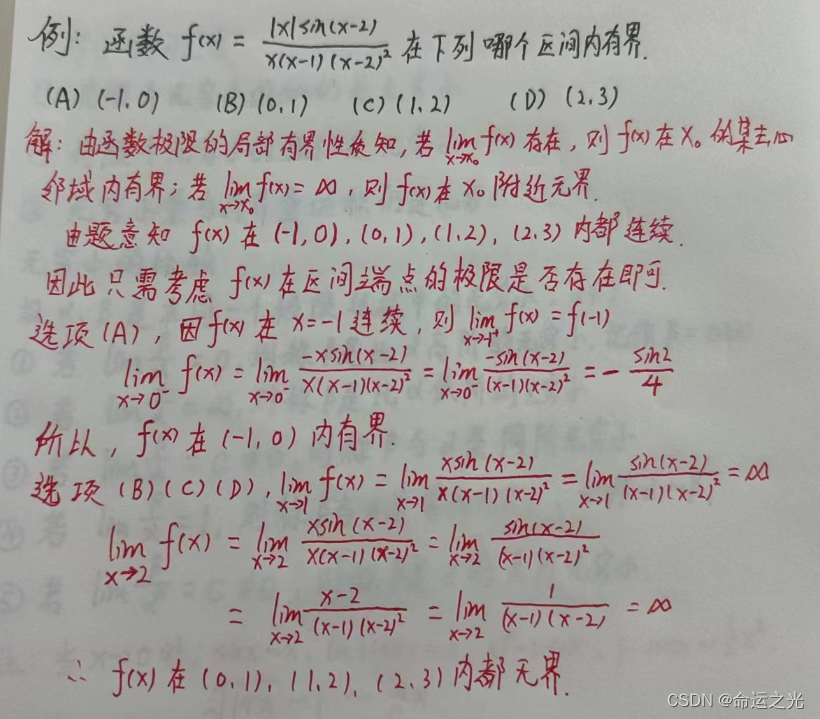 例: 函数 f(x) = |x|sin(x-2) / x(x-1)(x-2)² 在下列哪个区间内有界.
(A) (-1,0) (B) (0,1) (C) (1,2) (D) (2,3)
解: 由函数极限的局部有界性质知, 若 lim x→x₀ f(x) 存在, 则 f(x) 在 x₀ 的某去心
邻域内有界; 若 lim x→x₀ f(x) = ∞, 则 f(x) 在 x₀ 附近无界.
由题意知 f(x) 在 (-1,0), (0,1), (1,2), (2,3) 内部连续.
因此只需考虑 f(x) 在区间端点的极限是否存在即可.
选项 (A), 因 f(x) 在 x=-1 连续, 则 lim x→-1⁺ f(x) = f(-1)
lim x→0⁻ f(x) = lim x→0⁻ -xsin(x-2) / x(x-1)(x-2)² = lim x→0⁻ -sin(x-2) / (x-1)(x-2)² = - sin2 / 4
所以, f(x) 在 (-1,0) 内有界.
选项 (B) (C) (D), lim x→1 f(x) = lim x→1 xsin(x-2) / x(x-1)(x-2)² = lim x→1 sin(x-2) / (x-1)(x-2)² = ∞
lim x→2 f(x) = lim x→2 xsin(x-2) / x(x-1)(x-2)² = lim x→2 sin(x-2) / (x-1)(x-2)²
= lim x→2 x-2 / (x-1)(x-2)² = lim x→2 1 / (x-1)(x-2) = ∞
∴ f(x) 在 (0,1), (1,2), (2,3) 内部无界.
CSDN @命运之光